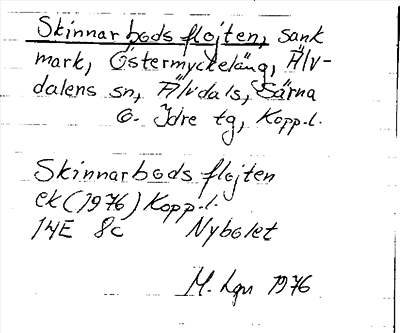 Skinnarbods flojten, sank
mark, Östermyckeläng, Älv-
dalens sn, Älvdals, Särna
o. Idre tg, Kopp.l.
Skinnarbods flojten
ek (1976) Kopp.l.
14E 8c Nybolet
M. Lgn 1976